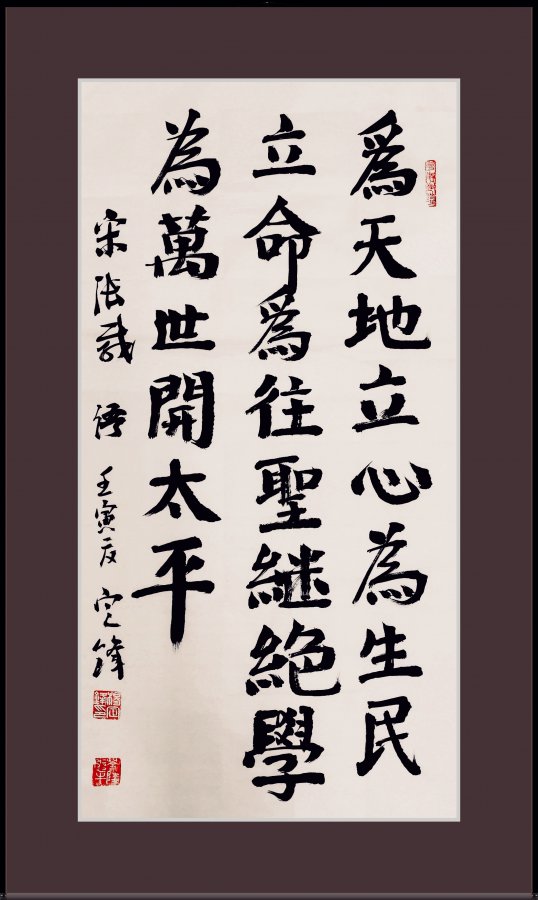 爲天地立心為生民
立命為往聖継絕學
為萬世開太平
宋張載語 壬寅夏 定鋒